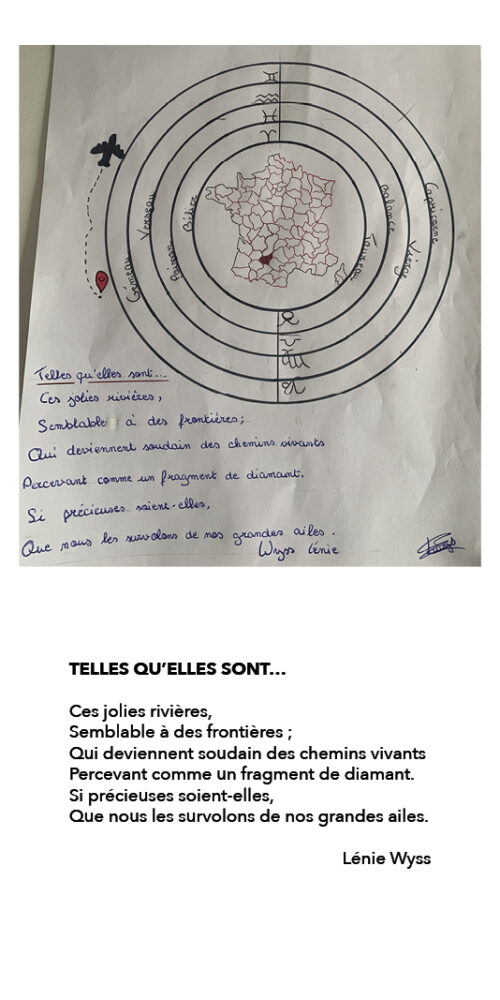 Gémeau
Verseau
Poisson
Bélier
Taureau
Balance
Vierge
Capricorne
Telles qu'elles sont...
Ces jolies rivières,
Semblable à des frontières;
Qui deviennent soudain des chemins vivants
Percevant comme un fragment de diamant.
Si précieuses soient-elles,
Que nous les survolons de nos grandes ailes.
Wyss Lénie
TELLES QU'ELLES SONT...
Ces jolies rivières,
Semblable à des frontières ;
Qui deviennent soudain des chemins vivants
Percevant comme un fragment de diamant.
Si précieuses soient-elles,
Que nous les survolons de nos grandes ailes.
Lénie Wyss